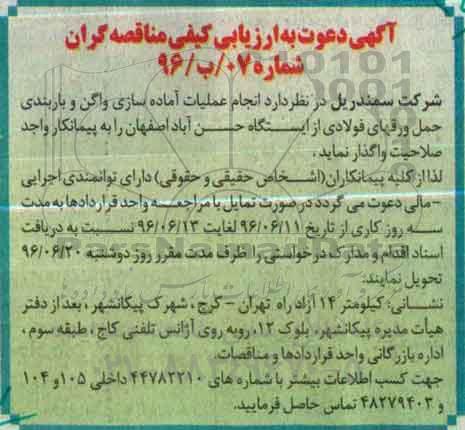 آگهی دعوت به ارزیابی کیفی مناقصه گران
شماره ۰۷/ب/۹۶
شرکت سمندریل در نظر دارد انجام عملیات آماده سازی واگن و باربندی
حمل ورقهای فولادی از ایستگاه حسن آباد اصفهان را به پیمانکار واجد
صلاحیت واگذار نماید .
لذا از کلیه پیمانکاران (اشخاص حقیقی و حقوقی) دارای توانمندی اجرایی
-مالی دعوت می گردد در صورت تمایل با مراجعه واحد قراردادها به مدت
سه روز کاری از تاریخ ۹۶/۰۶/۱۱ لغایت ۹۶/۰۶/۱۳ نسبت به دریافت
اسناد اقدام و مدارک درخواستی را ظرف مدت مقرر روز دوشنبه ۹۶/۰۶/۲۰
تحویل نمایند.
نشانی: کیلومتر ۱۴ آزاد راه تهران - کرج ، شهرک پیکانشهر ، بعد از دفتر
هیأت مدیره پیکانشهر، بلوک ۱۲، روبه روی آژانس تلفنی کاج ، طبقه سوم ،
اداره بازرگانی واحد قراردادها و مناقصات.
جهت کسب اطلاعات بیشتر با شماره های ۴۴۷۸۲۲۱۰ داخلی ۱۰۵ و ۱۰۴
و ۴۸۲۷۹۴۰۳ تماس حاصل فرمایید.